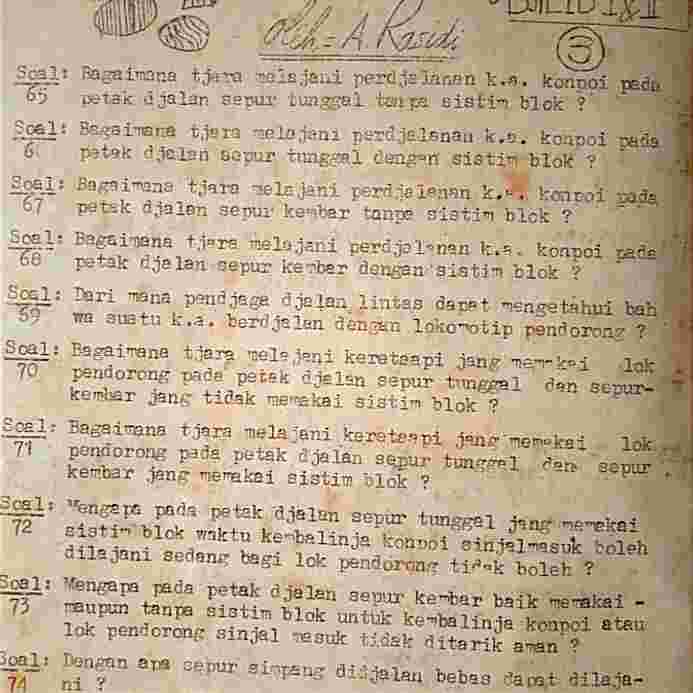 DUTILID I & II
oleh = A. Rasidi
3
Soal: Bagaimana tjara melajani perdjalanan k.a. konpoi pada
65 petak djalan sepur tunggal tanpa sistim blok ?
Soal: Bagaimana tjara melajani perdjalanan k.a. konpoi pada
6 petak djalan sepur tunggal dengan sistim blok ?
Soal: Bagaimana tjara melajani perdjalanan k.a. konpoi pada
67 petak djalan sepur kembar tanpa sistim blok ?
Soal: Bagaimana tjara melajani perdjalanan k.a. konpoi pada
68 petak djalan sepur kembar dengan sistim blok ?
Soal: Dari mana pendjaga djalan lintas dapat mengetahui bah
69 wa suatu k.a. berdjalan dengan lokomotip pendorong ?
Soal: Bagaimana tjara melajani keretaapi jang memakai lok
70 pendorong pada petak djalan sepur tunggal dan sepur-
kembar jang tidak memakai sistim blok ?
Soal: Bagaimana tjara melajani keretaapi jang memakai lok
71 pendorong pada petak djalan sepur tunggal dan sepur
kembar jang memakai sistim blok ?
Soal: Mengapa pada petak djalan sepur tunggal jang memakai
72 sistim blok waktu kembalinja konpoi sinjalmasuk boleh
dilajani sedang bagi lok pendorong tidak boleh ?
Soal: Mengapa pada petak djalan sepur kembar baik memakai -
73 maupun tanpa sistim blok untuk kembalinja konpoi atau
lok pendorong sinjal masuk tidak ditarik aman ?
Soal: Dengan apa sepur simpang didjalan bebas dapat dilaja-
74 ni ?